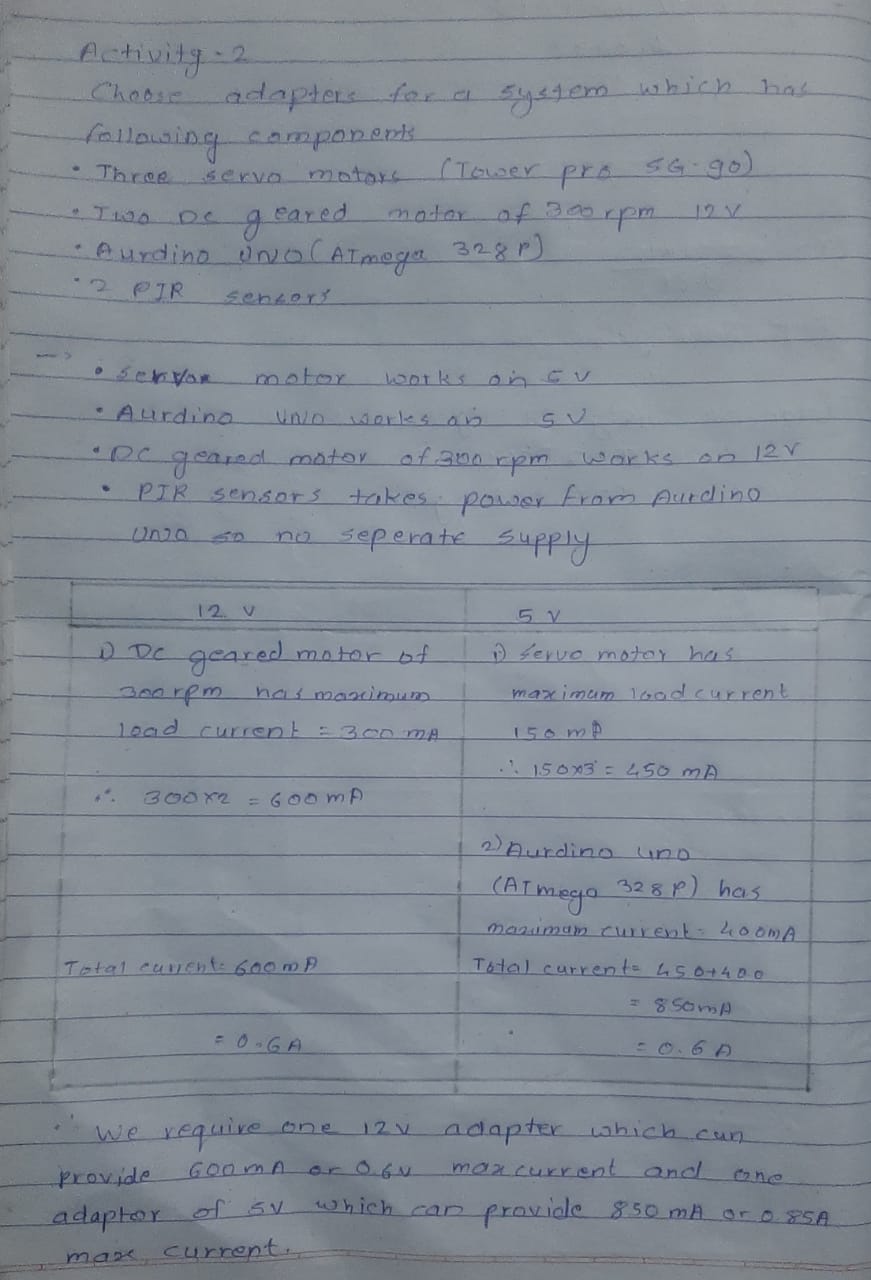 Activity - 2
Choose adapters for a system which has
following components
• Three servo motors (Tower pro SG-90)
• Two DC geared motor of 300 rpm 12V
• Aurdino UNO (ATmega 328P)
• 2 PIR sensors
→
• Servo motor works on 5V
• Aurdino UNO works on 5V
• DC geared motor of 300 rpm works on 12V
• PIR sensors takes power from Aurdino
UNO so no seperate supply
12 V
1) DC geared motor of
300rpm has maximum
load current = 300 mA
∴ 300x2 = 600mA
Total current = 600mA
= 0.6A
5 V
1) Servo motor has
maximum load current
150 mA
∴ 150x3 = 450 mA
2) Aurdino uno
(ATmega 328P) has
maximum current = 400mA
Total current = 450+400
= 850mA
= 0.6 A
∴ We require one 12v adapter which can
provide 600mA or 0.6v max current and one
adaptor of 5V which can provide 850 mA or 0.85A
max current.